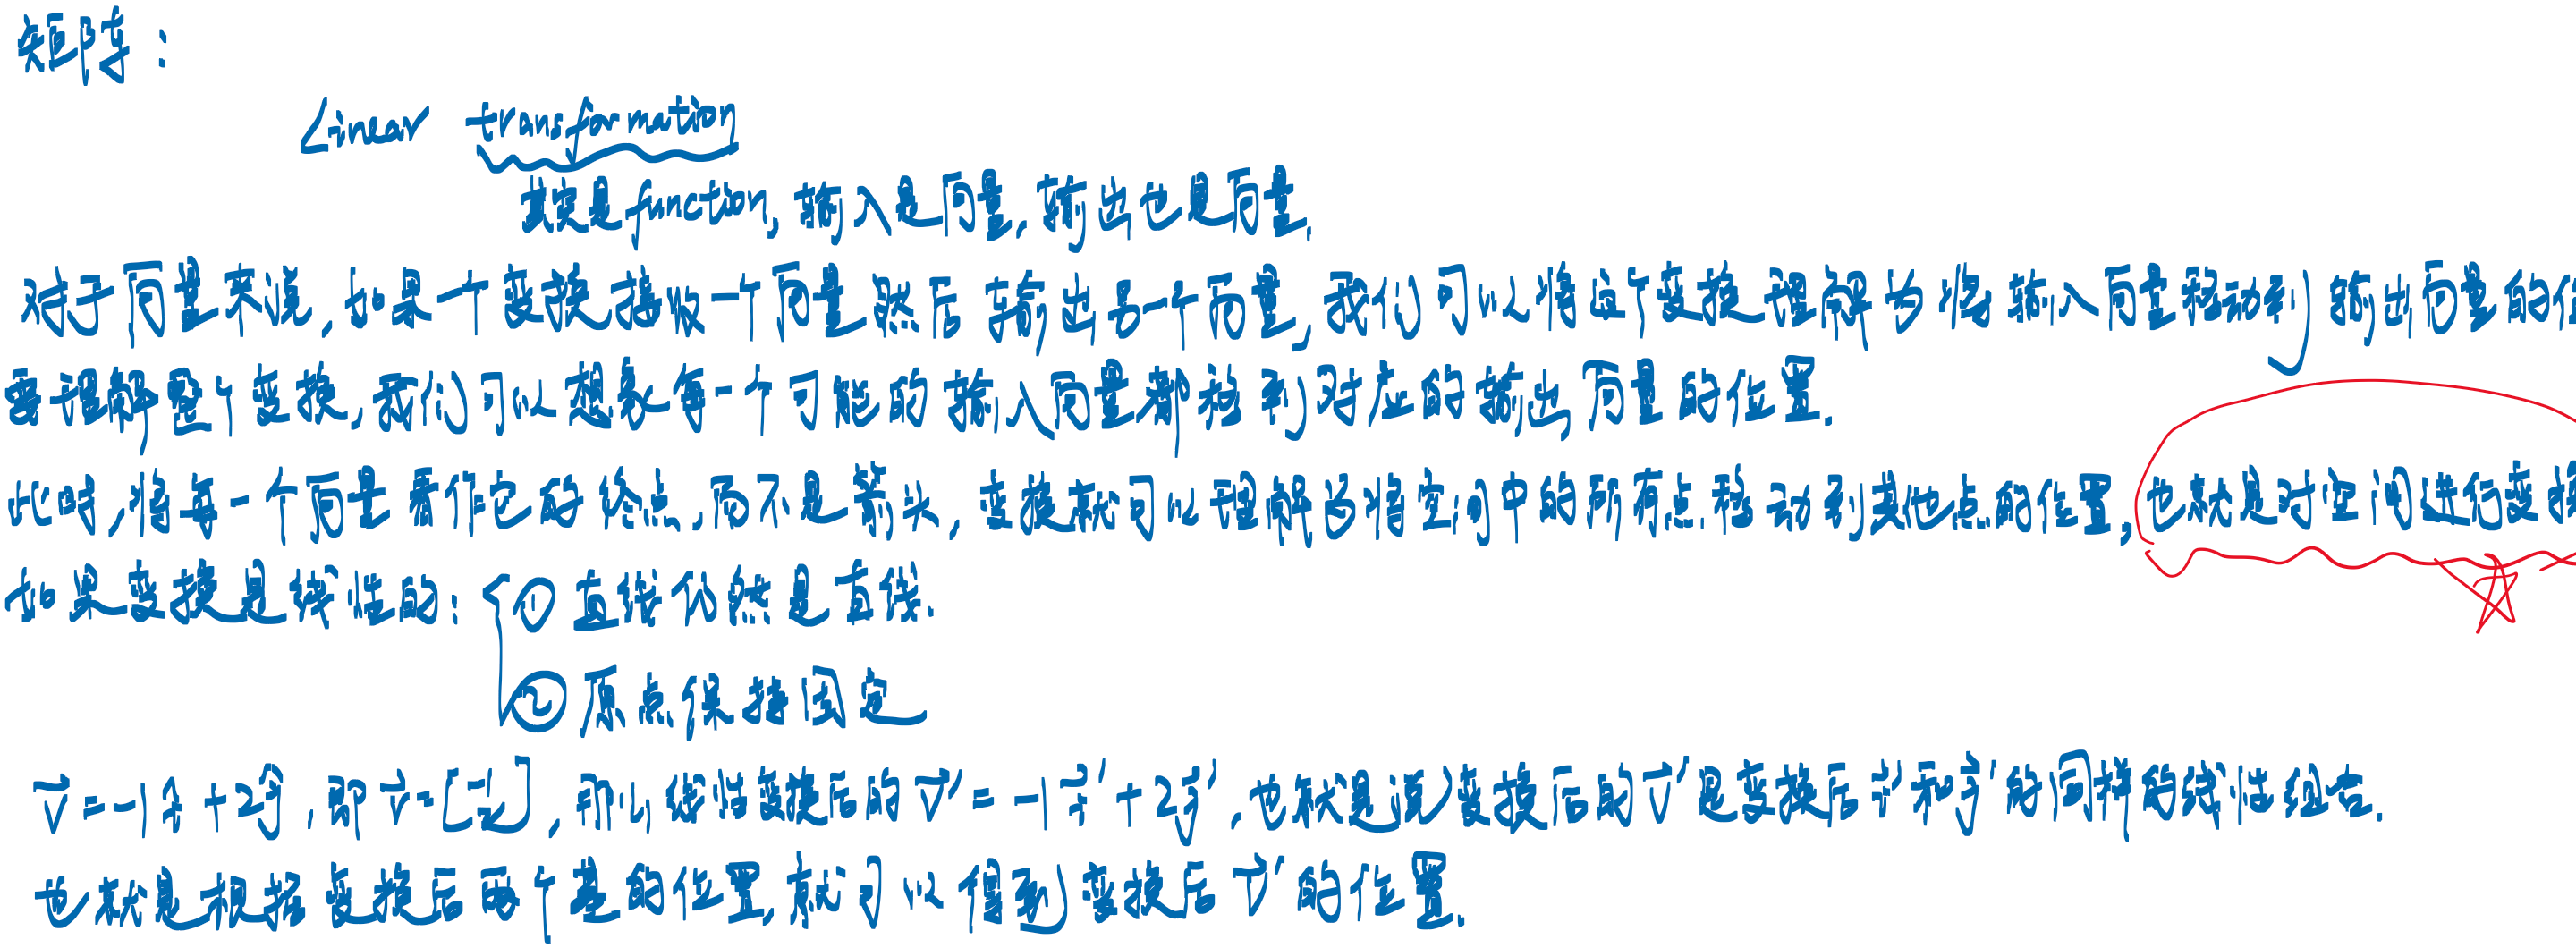 矩阵：
Linear transformation
其实是function, 输入是向量, 输出也是向量.
对于向量来说, 如果一个变换接收一个向量然后输出另一个向量, 我们可以将这个变换理解为将输入向量移动到输出向量的位
要理解整个变换, 我们可以想象每一个可能的输入向量都移到对应的输出向量的位置.
此时, 将每一个向量看作它的终点, 而不是箭头, 变换就可以理解为将空间中的所有点移动到其他点的位置, 也就是对空间进行变换
如果变换是线性的: ① 直线仍然是直线.
② 原点保持固定
v⃗ = -1î + 2ĵ, 即 v⃗ = [-1 2], 那么线性变换后的 v⃗' = -1 i⃗' + 2j⃗', 也就是说变换后的 v⃗' 是变换后 i⃗' 和 j⃗' 的同样的线性组合.
也就是根据变换后两个基的位置, 就可以得到变换后 v⃗' 的位置.